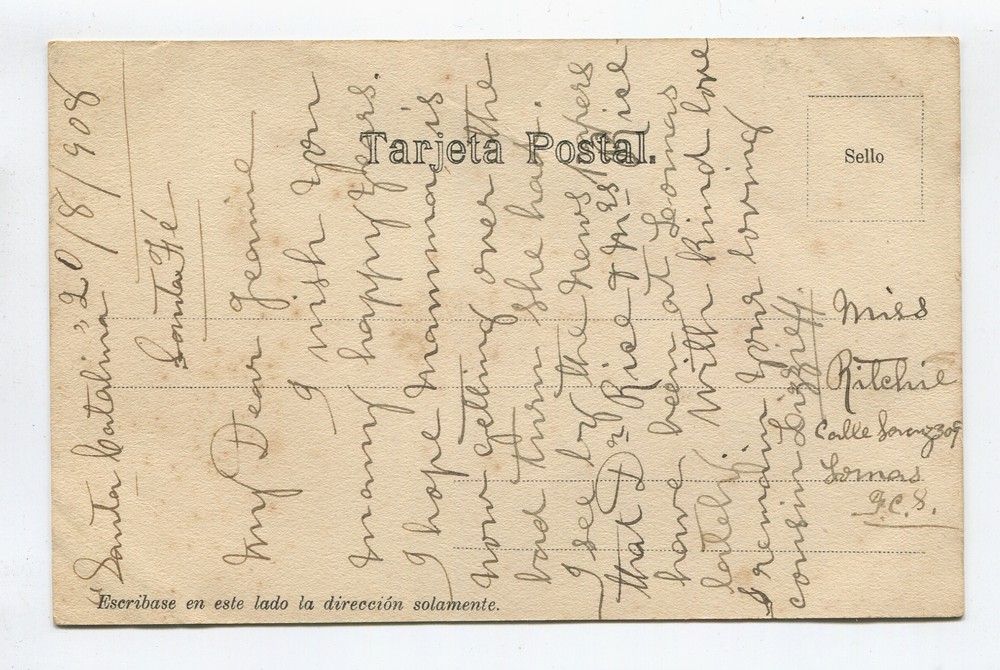 Tarjeta Postal.
Sello
"Santa Catalina" 20/8/908
Santa Fé
My Dear Jeanie
I wish you
many happy years.
I hope Mamma is
now getting over the
bad turn she had.
I see by the News papers
that Dr Rice & Mrs Rice
have been at Lomas
lately. With kind love
I remain your loving
cousin Lizzie
Miss
Ritchie
Calle 309
Lomas
F.C.S.
Escribase en este lado la dirección solamente.